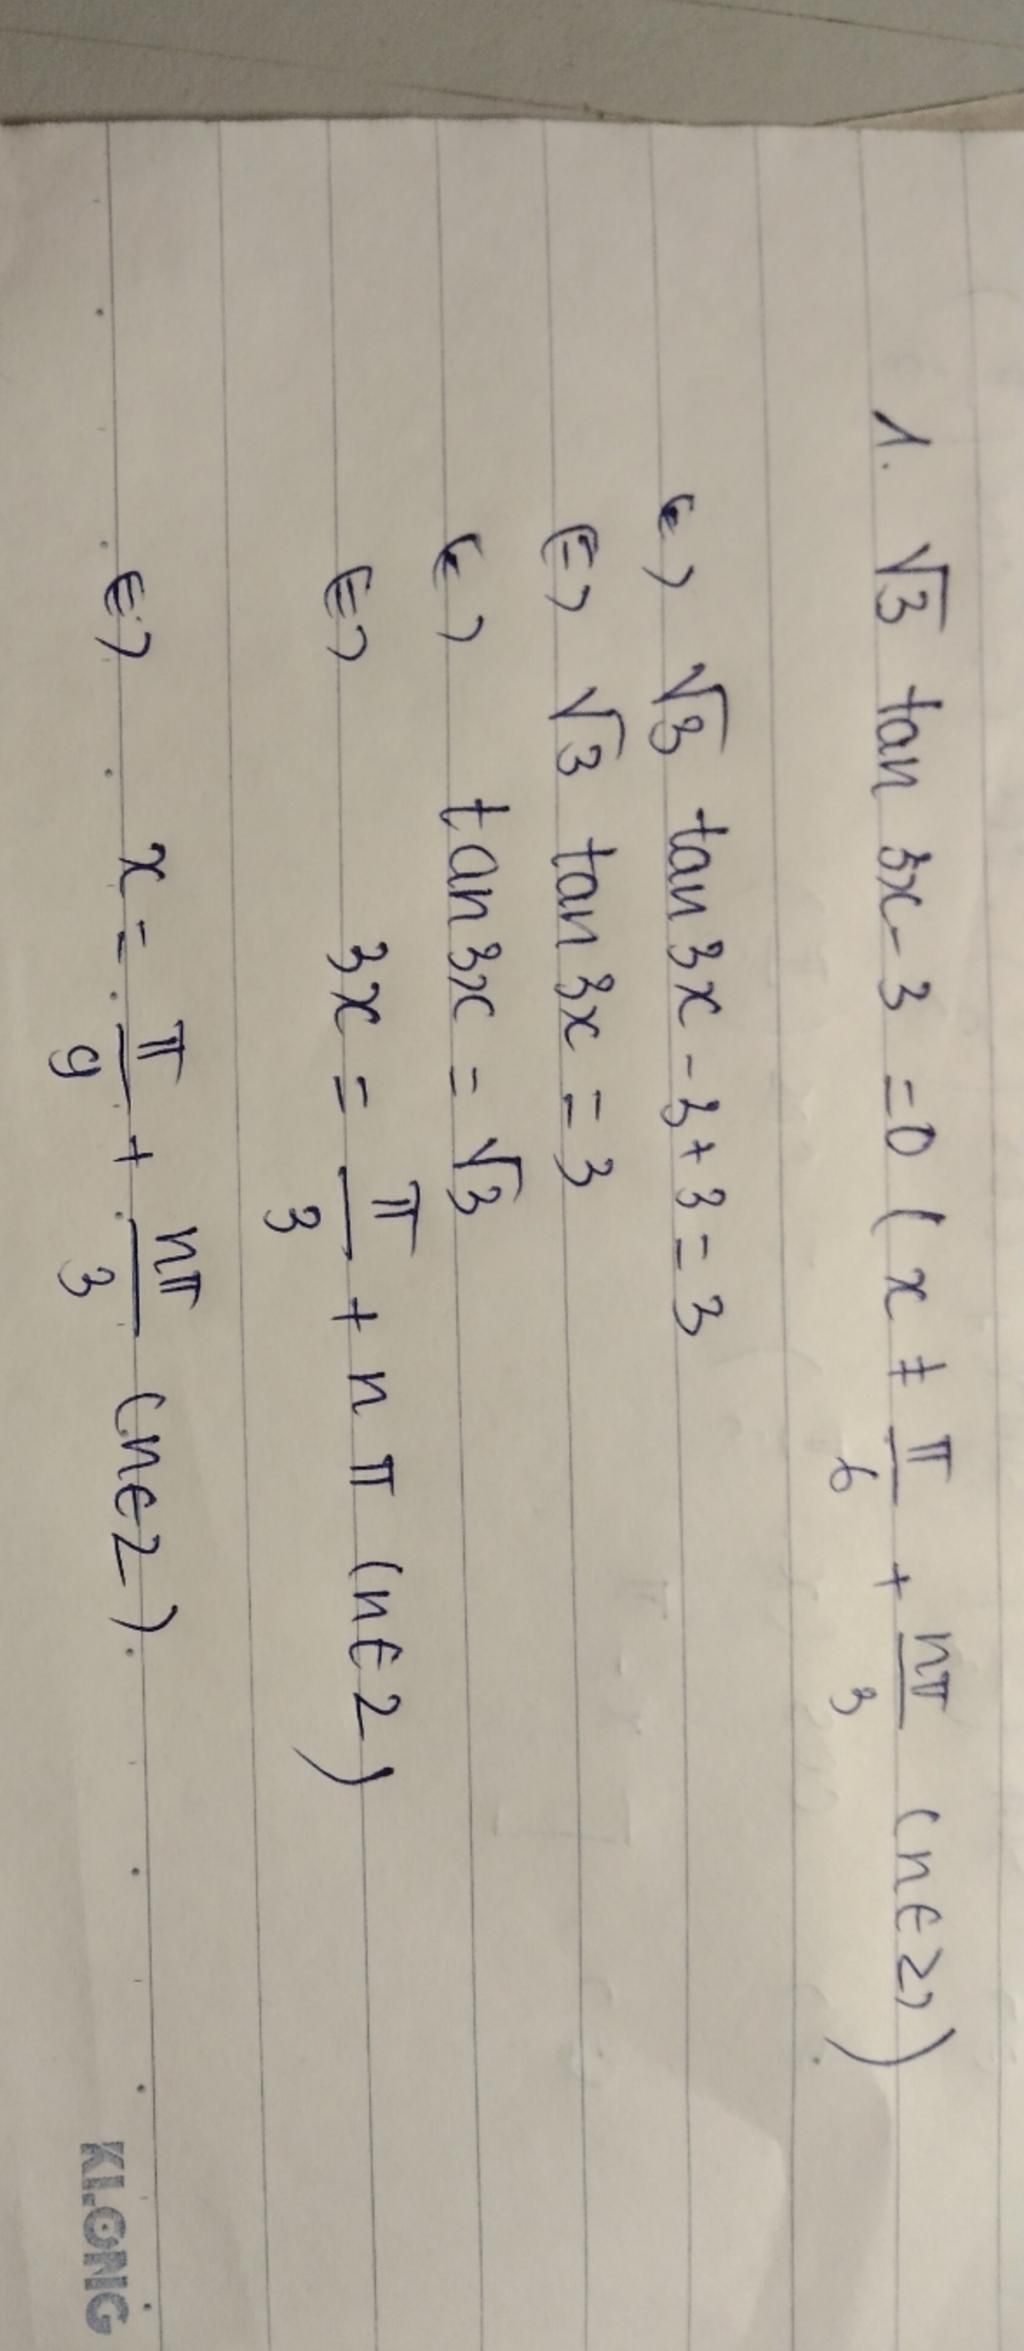 1. √3 tan 3x - 3 = 0 ( x ≠ π/6 + nπ/3 (n ∈ Z) )
<=> √3 tan 3x - 3 + 3 = 3
<=> √3 tan 3x = 3
<=> tan 3x = √3
<=> 3x = π/3 + n π (n ∈ Z)
<=> x = π/9 + nπ/3 (n ∈ Z).
KLONG